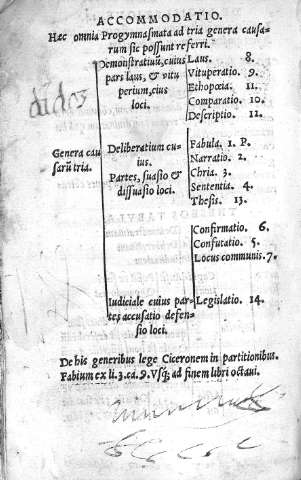 ACCOMMODATIO.
Hæc omnia Progymnasmata ad tria genera causa-
rum sic possunt referri.
Demonstratiuũ, cuius
pars laus, & vitu
perium, eius
loci.
Laus. 8.
Vituperatio. 9.
Ethopœia. 11.
Comparatio. 10.
Descriptio. 12.
didos
Genera cau
sarũ tria.
Deliberatium cu-
ius.
Partes, suasio &
dissuasio loci.
Fabula. 1. P.
Narratio. 2.
Chria. 3.
Sententia. 4.
Thesis. 13.
Confirmatio. 6.
Confutatio. 5.
Locus communis. 7.
Iudiciale cuius par-
tes accusatio defen-
sio loci.
Legislatio. 14.
De his generibus lege Ciceronem in partitionibus.
Fabium ex li. 3. ca. 9. Vsq; ad finem libri octaui.